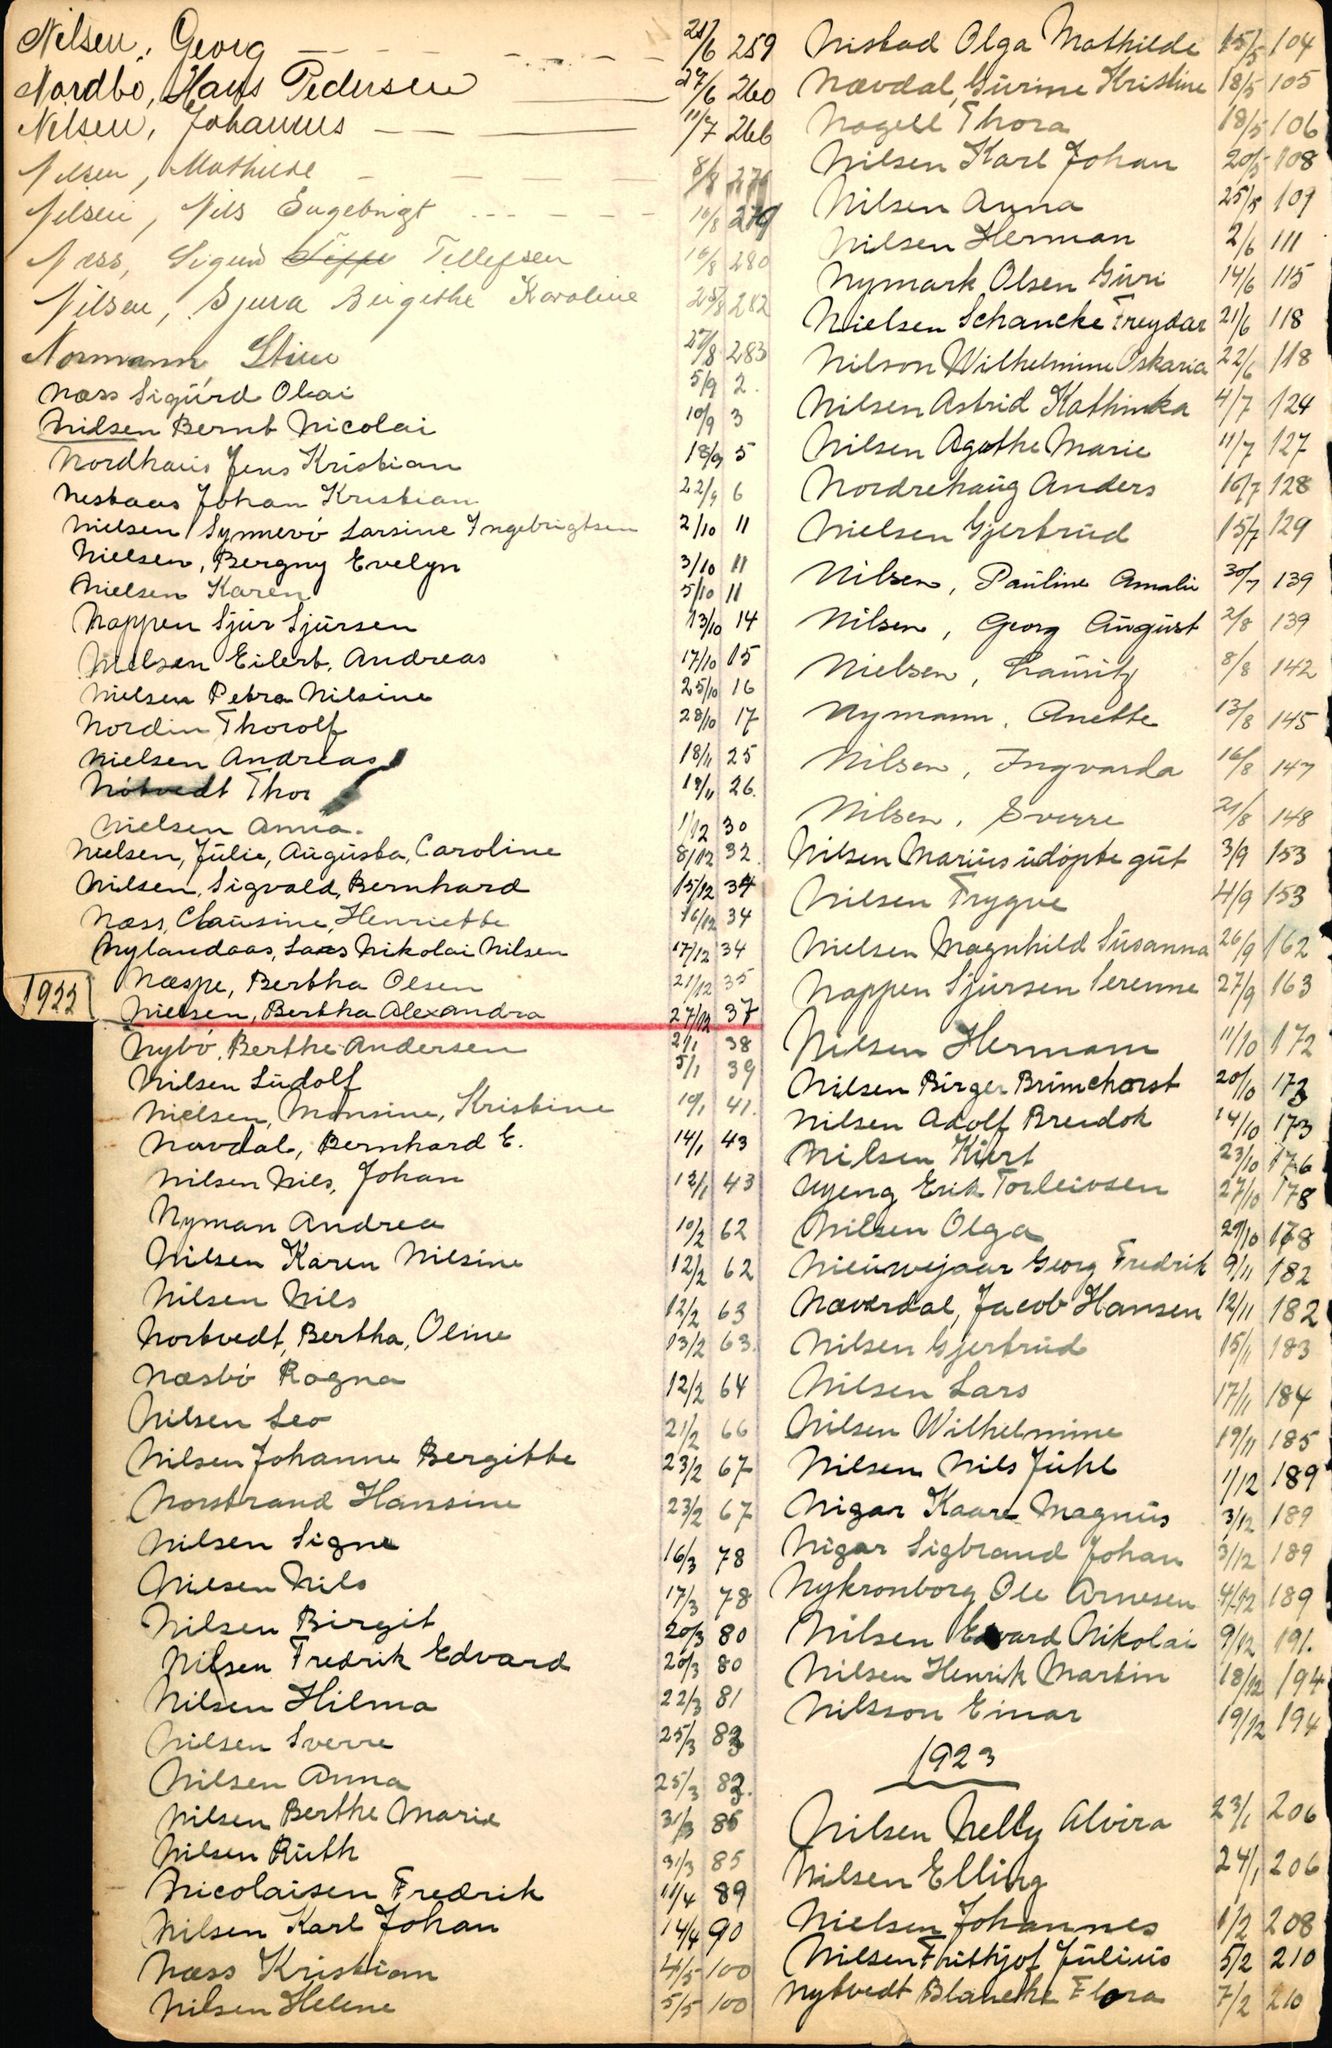 Nilsen, Georg 21/6 259
Nordbö, Hans Pedersen 27/6 260
Nilsen, Johannes 11/7 266
Nilsen, Mathilde 8/8
Nilsen, Nils Engebrigt 16/8 279
Næss, Sigurd Tellefsen 16/8 280
Nilsen, Gjura Birgithe Karoline 25/8 282
Normann, Stine 27/8 283
Næss Sigurd Olai 5/9 2.
Nilsen Bernt Nicolai 10/9 3
Nordhaus Jens Kristian 18/9 5
Nestaas Johan Kristian 22/9 6
Nielsen Synnevö Larsine Ingebrigtsen 2/10 11
Nielsen, Bergny Evelyn 3/10 11
Nielsen Karen 5/10 11
Nappen Sjur Sjursen 13/10 14
Nielsen Eilert, Andreas 17/10 15
Nielsen Petra Nilsine 25/10 16
Nordin Thorolf 28/10 17
Nielsen Andreas 18/11 25
Nötvedt Thor 19/11 26.
Nielsen Anna. 1/12 30
Nielsen, Julie, Augusta, Caroline 8/12 32.
Nilsen, Sigvald, Bernhard 15/12 34
Næss, Clausine, Henriette 16/12 34
Nylandaas, Lars Nikolai Nilsen 17/12 34
Næspe, Bertha Olsen 21/12 35
Nielsen, Bertha Alexandra 27/12 37
1922
Nybö, Berthe Andersen 2/1 38
Nilsen Ludolf 5/1 39
Nielsen, Monsine, Kristine 10/1 41.
Navdal, Bernhard E. 14/1 43
Nilsen Nils, Johan 12/1 43
Nyman Andrea 10/2 62
Nilsen Karen Nilsine 12/2 62
Nilsen Nils 12/2 63
Nortvedt, Bertha, Oline 13/2 63.
Næsbö Ragna 12/2 64
Nilsen Leo 21/2 66
Nilsen Johanne Bergitte 23/2 67
Norstrand Hansine 23/2 67
Nilsen Signe 16/3 78
Nilsen Nils 17/3 78
Nilsen Birgit 20/3 80
Nilsen Fredrik Edvard 20/3 80
Nilsen Hilma 22/3 81
Nilsen Sverre 25/3 83
Nilsen Anna 25/3 83.
Nilsen Berthe Marie 31/3 85
Nilsen Ruth 31/3 85
Nicolaisen Fredrik 11/4 89
Nilsen Karl Johan 14/4 90
Næss Kristian 4/5 100
Nilsen Helene 5/5 100
Nistad Olga Mathilde 15/5 104
Nævdal, Gurine Kristine 18/5 105
Nagell Thora 18/5 106
Nilsen Karl Johan 20/5 108
Nilsen Anna 25/5 109
Nilsen Herman 2/6 111
Nymark Olsen Guri 14/6 115
Nielsen Schancke Freydar 21/6 118
Nilson Wilhelmine Oskaria 22/6 118
Nilsen Astrid Kathinka 4/7 124
Nilsen Agathe Marie 11/7 127
Nordrehaug Anders 16/7 128
Nielsen Gjertrud 15/7 129
Nilsen, Pauline Amalie 30/7 139
Nilsen, Georg August 2/8 139
Nielsen, Lauritz 8/8 142
Nymann, Anette 13/8 145
Nilsen, Ingvarda 16/8 147
Nilsen, Sverre 21/8 148
Nilsen Marius udöpte gut 3/9 153
Nilsen Trygve 4/9 153
Nielsen Magnhild Susanna 26/9 162
Nappen Sjursen Serenne 27/9 163
Nilsen Hermam 11/10 172
Nilsen Birger Brinchorst 20/10 173
Nilsen Adolf Breidok 14/10 173
Nilsen Kurt 23/10 176
Nyeng Erik Torleivsen 27/10 178
Nilsen Olga 29/10 178
Nieuwejaar Georg Fredrik 9/11 182
Næverdal, Jacob Hansen 12/11 182
Nilsen Gjertrud 15/11 183
Nilsen Lars 17/11 184
Nilsen Wilhelmine 19/11 185
Nilsen Nils Juhl 1/12 189
Nigar Kaare Magnus 3/12 189
Nigar Sigbrand Johan 3/12 189
Nykronborg Ole Arnesen 4/12 189
Nilsen Edvard Nikolai 9/12 191.
Nilsen Henrik Martin 18/12 194
Nilsson Einar 19/12 194
1923
Nilsen Nelly Alvira 23/1 206
Nilsen Elling 24/1 206
Nielsen Johannes 1/2 208
Nilsen Frithjof Julius 5/2 210
Nytvedt Blanche Flora 7/2 210